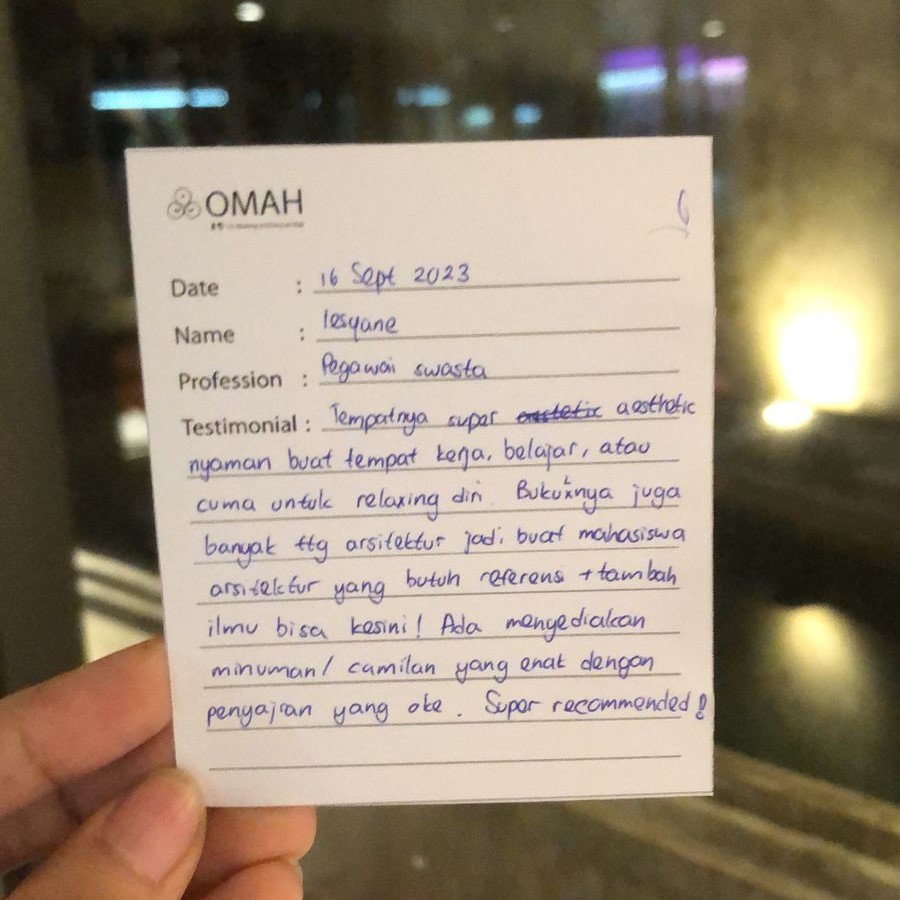 OMAH
Date : 16 Sept 2023
Name : Iesyane
Profession : Pegawai swasta
Testimonial : Tempatnya super aesthetic
nyaman buat tempat kerja, belajar, atau
cuma untuk relaxing diri. Buku²nya juga
banyak ttg arsitektur jadi buat mahasiswa
arsitektur yang butuh referensi + tambah
ilmu bisa kesini! Ada menyediakan
minuman/ camilan yang enak dengan
penyajian yang oke. Super recommended!